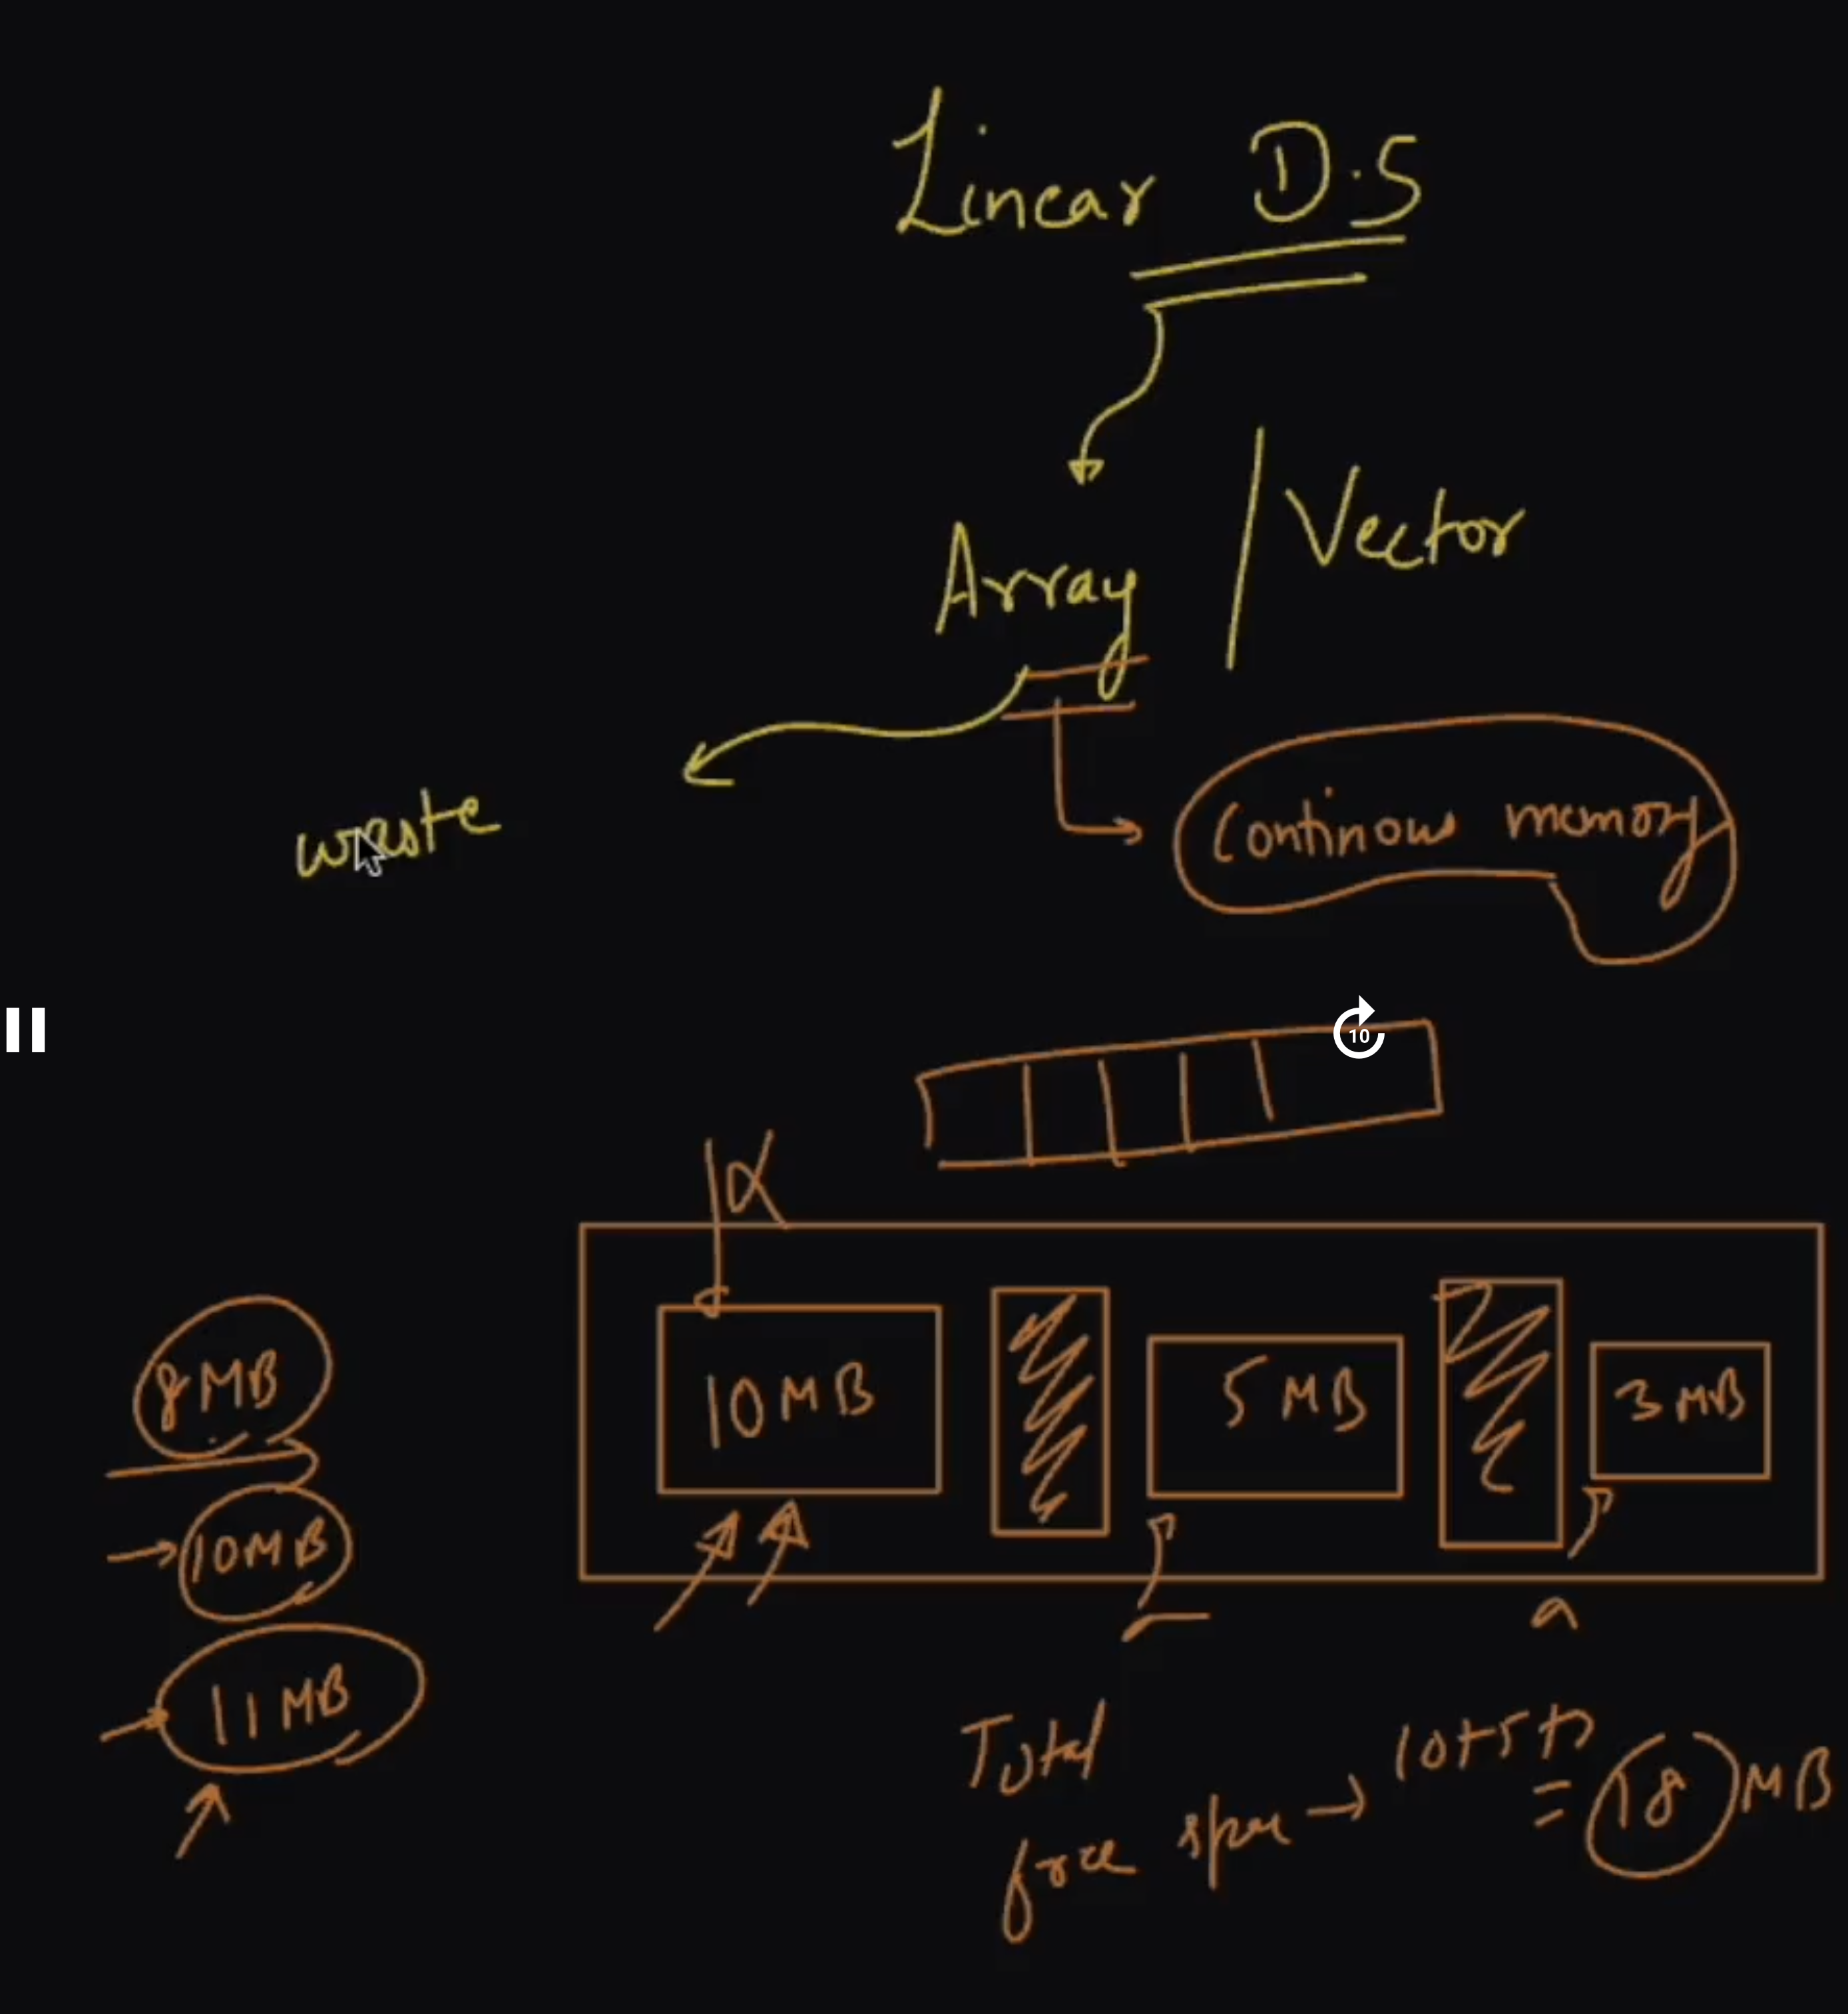 Linear D.S
Array / Vector
waste
Continous memory
10
8 MB
10 MB
5 MB
3 MB
10MB
11 MB
Total
free space → 10+5+3
= 18 MB